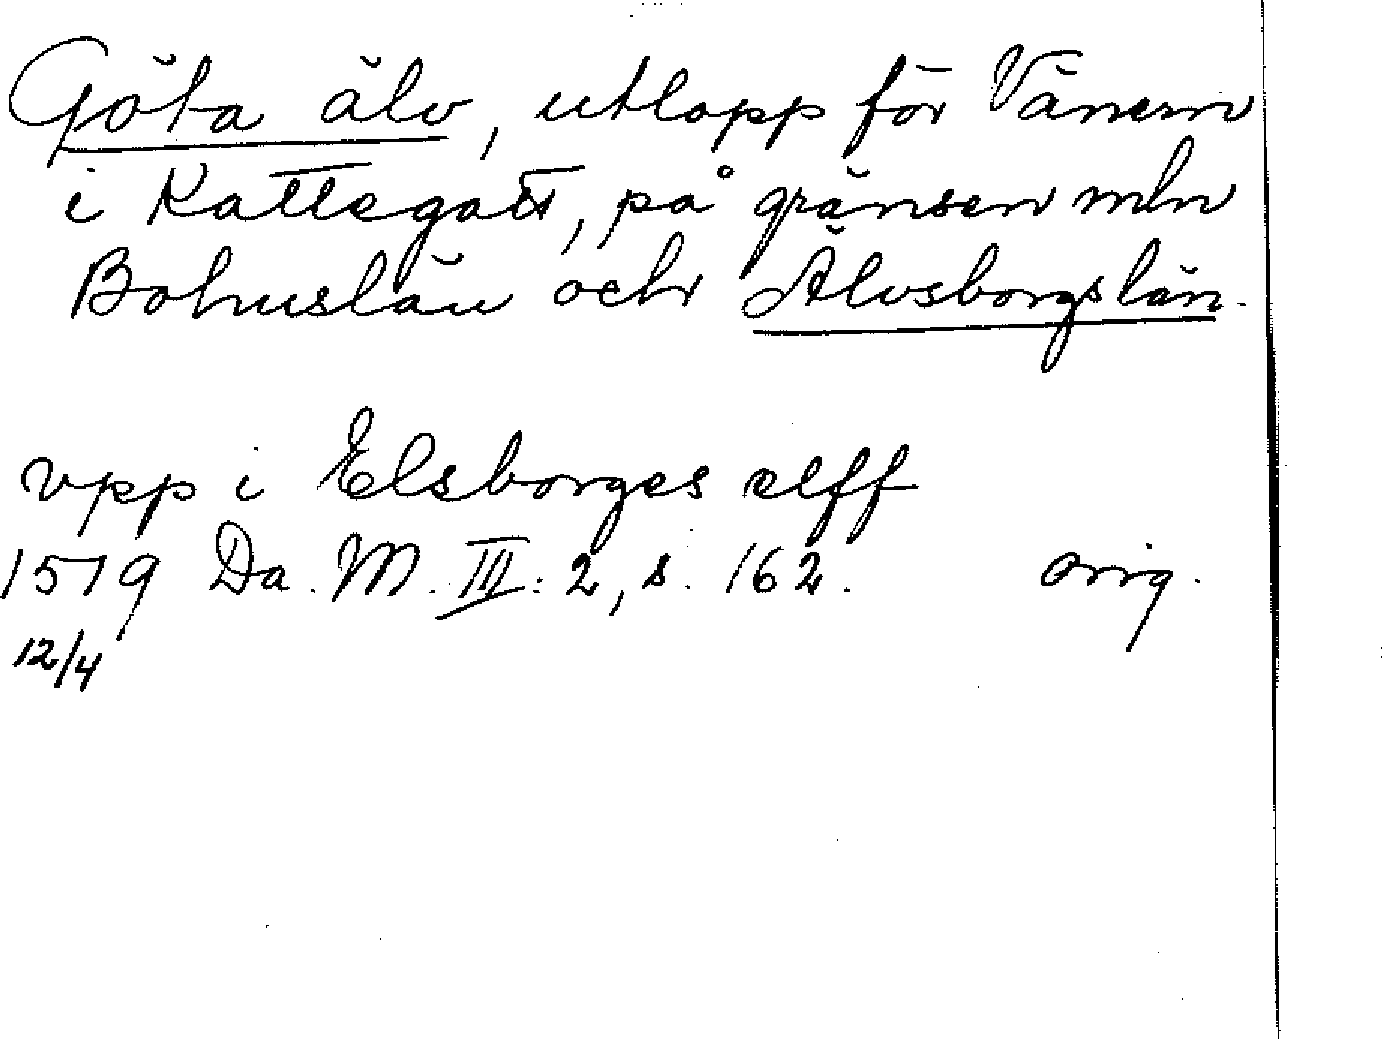 Göta älv, utlopp för Vänern
i Kattegatt, på gränsen mln
Bohuslän och Älvsborgslän.
vpp i Elsborges elff
1519 Da. M. III: 2, s. 162. orig.
12/4